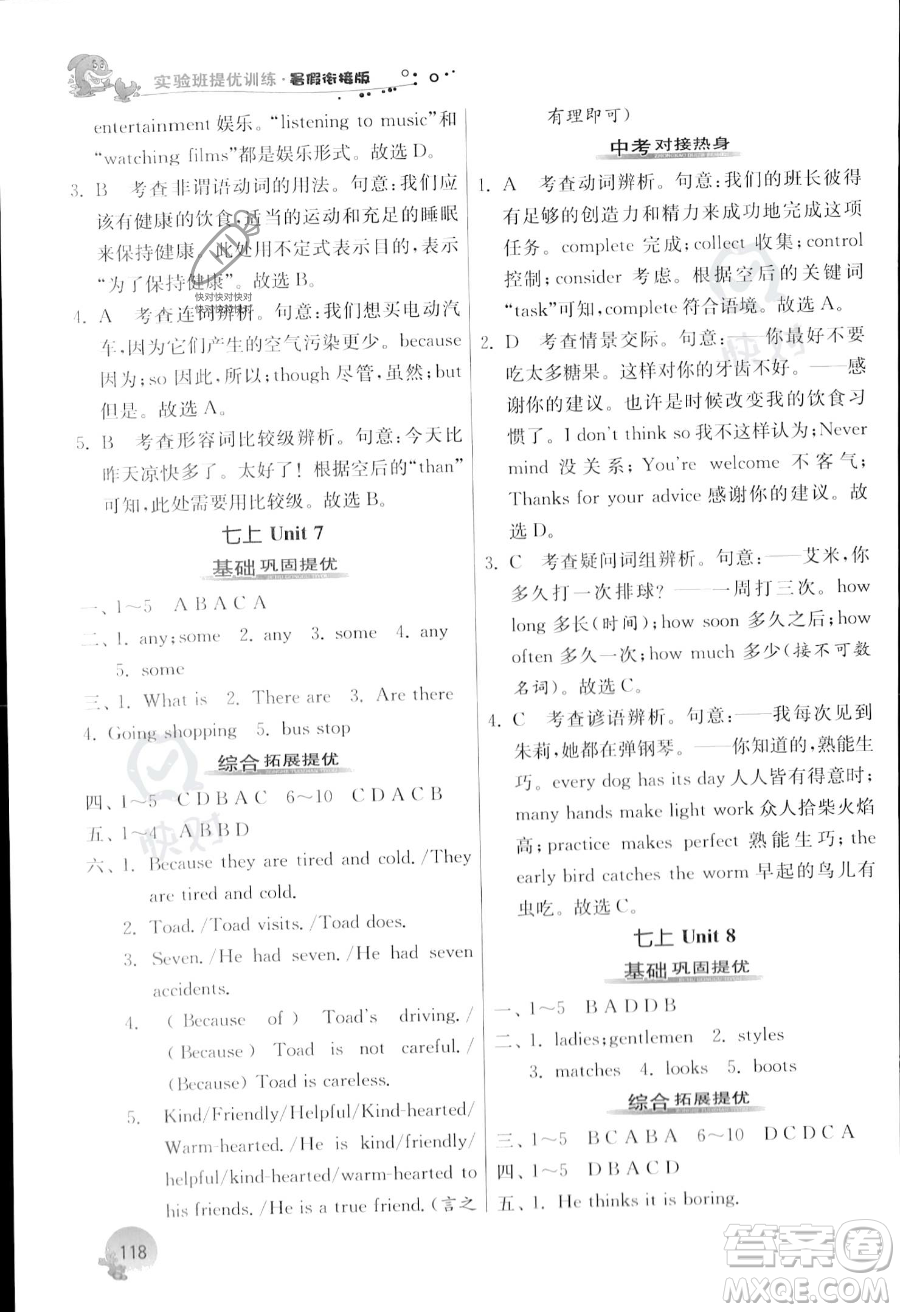 实验班提优训练·暑假衔接版
entertainment 娱乐。“listening to music”和
“watching films”都是娱乐形式。故选 D。
3. B 考查非谓语动词的用法。句意:我们应
该有健康的饮食、适当的运动和充足的睡眠
来保持健康。此处用不定式表示目的,表示
“为了保持健康”。故选 B。
4. A 考查连词辨析。句意:我们想买电动汽
车,因为它们产生的空气污染更少。because
因为;so 因此,所以;though 尽管,虽然;but
但是。故选 A。
5. B 考查形容词比较级辨析。句意:今天比
昨天凉快多了。太好了!根据空后的“than”
可知,此处需要用比较级。故选 B。
七上 Unit 7
基础 巩固提优
一、1～5 A B A C A
二、1. any;some 2. any 3. some 4. any
5. some
三、1. What is 2. There are 3. Are there
4. Going shopping 5. bus stop
综合 拓展提优
四、1～5 C D B A C 6～10 C D A C B
五、1～4 A B B D
六、1. Because they are tired and cold. /They
are tired and cold.
2. Toad. /Toad visits. /Toad does.
3. Seven. /He had seven. /He had seven
accidents.
4. (Because of) Toad's driving. /
(Because) Toad is not careful. /
(Because) Toad is careless.
5. Kind/Friendly/Helpful/Kind-hearted/
Warm-hearted. /He is kind/friendly/
helpful/kind-hearted/warm-hearted to
his friends. /He is a true friend. (言之
118
有理即可)
中考 对接热身
1. A 考查动词辨析。句意:我们的班长彼得
有足够的创造力和精力来成功地完成这项
任务。complete 完成;collect 收集;control
控制;consider 考虑。根据空后的关键词
“task”可知,complete 符合语境。故选 A。
2. D 考查情景交际。句意:——你最好不要
吃太多糖果。这对你的牙齿不好。——感
谢你的建议。也许是时候改变我的饮食习
惯了。I don't think so 我不这样认为;Never
mind 没关系;You're welcome 不客气;
Thanks for your advice 感谢你的建议。故
选 D。
3. C 考查疑问词组辨析。句意:——艾米,你
多久打一次排球?——一周打三次。how
long 多长(时间);how soon 多久之后;how
often 多久一次;how much 多少(接不可数
名词)。故选 C。
4. C 考查谚语辨析。句意:——我每次见到
朱莉,她都在弹钢琴。——你知道,熟能生
巧。every dog has its day 人人皆有得意时;
many hands make light work 众人拾柴火焰
高;practice makes perfect 熟能生巧;the
early bird catches the worm 早起的鸟儿有
虫吃。故选 C。
七上 Unit 8
基础 巩固提优
一、1～5 B A D D B
二、1. ladies;gentlemen 2. styles
3. matches 4. looks 5. boots
综合 拓展提优
三、1～5 B C A B A 6～10 D C D C A
四、1～5 D B A C D
五、1. He thinks it is boring.
快对快对快对
快对快对快对
快对
快对
快对
答案卷
MXQE.COM